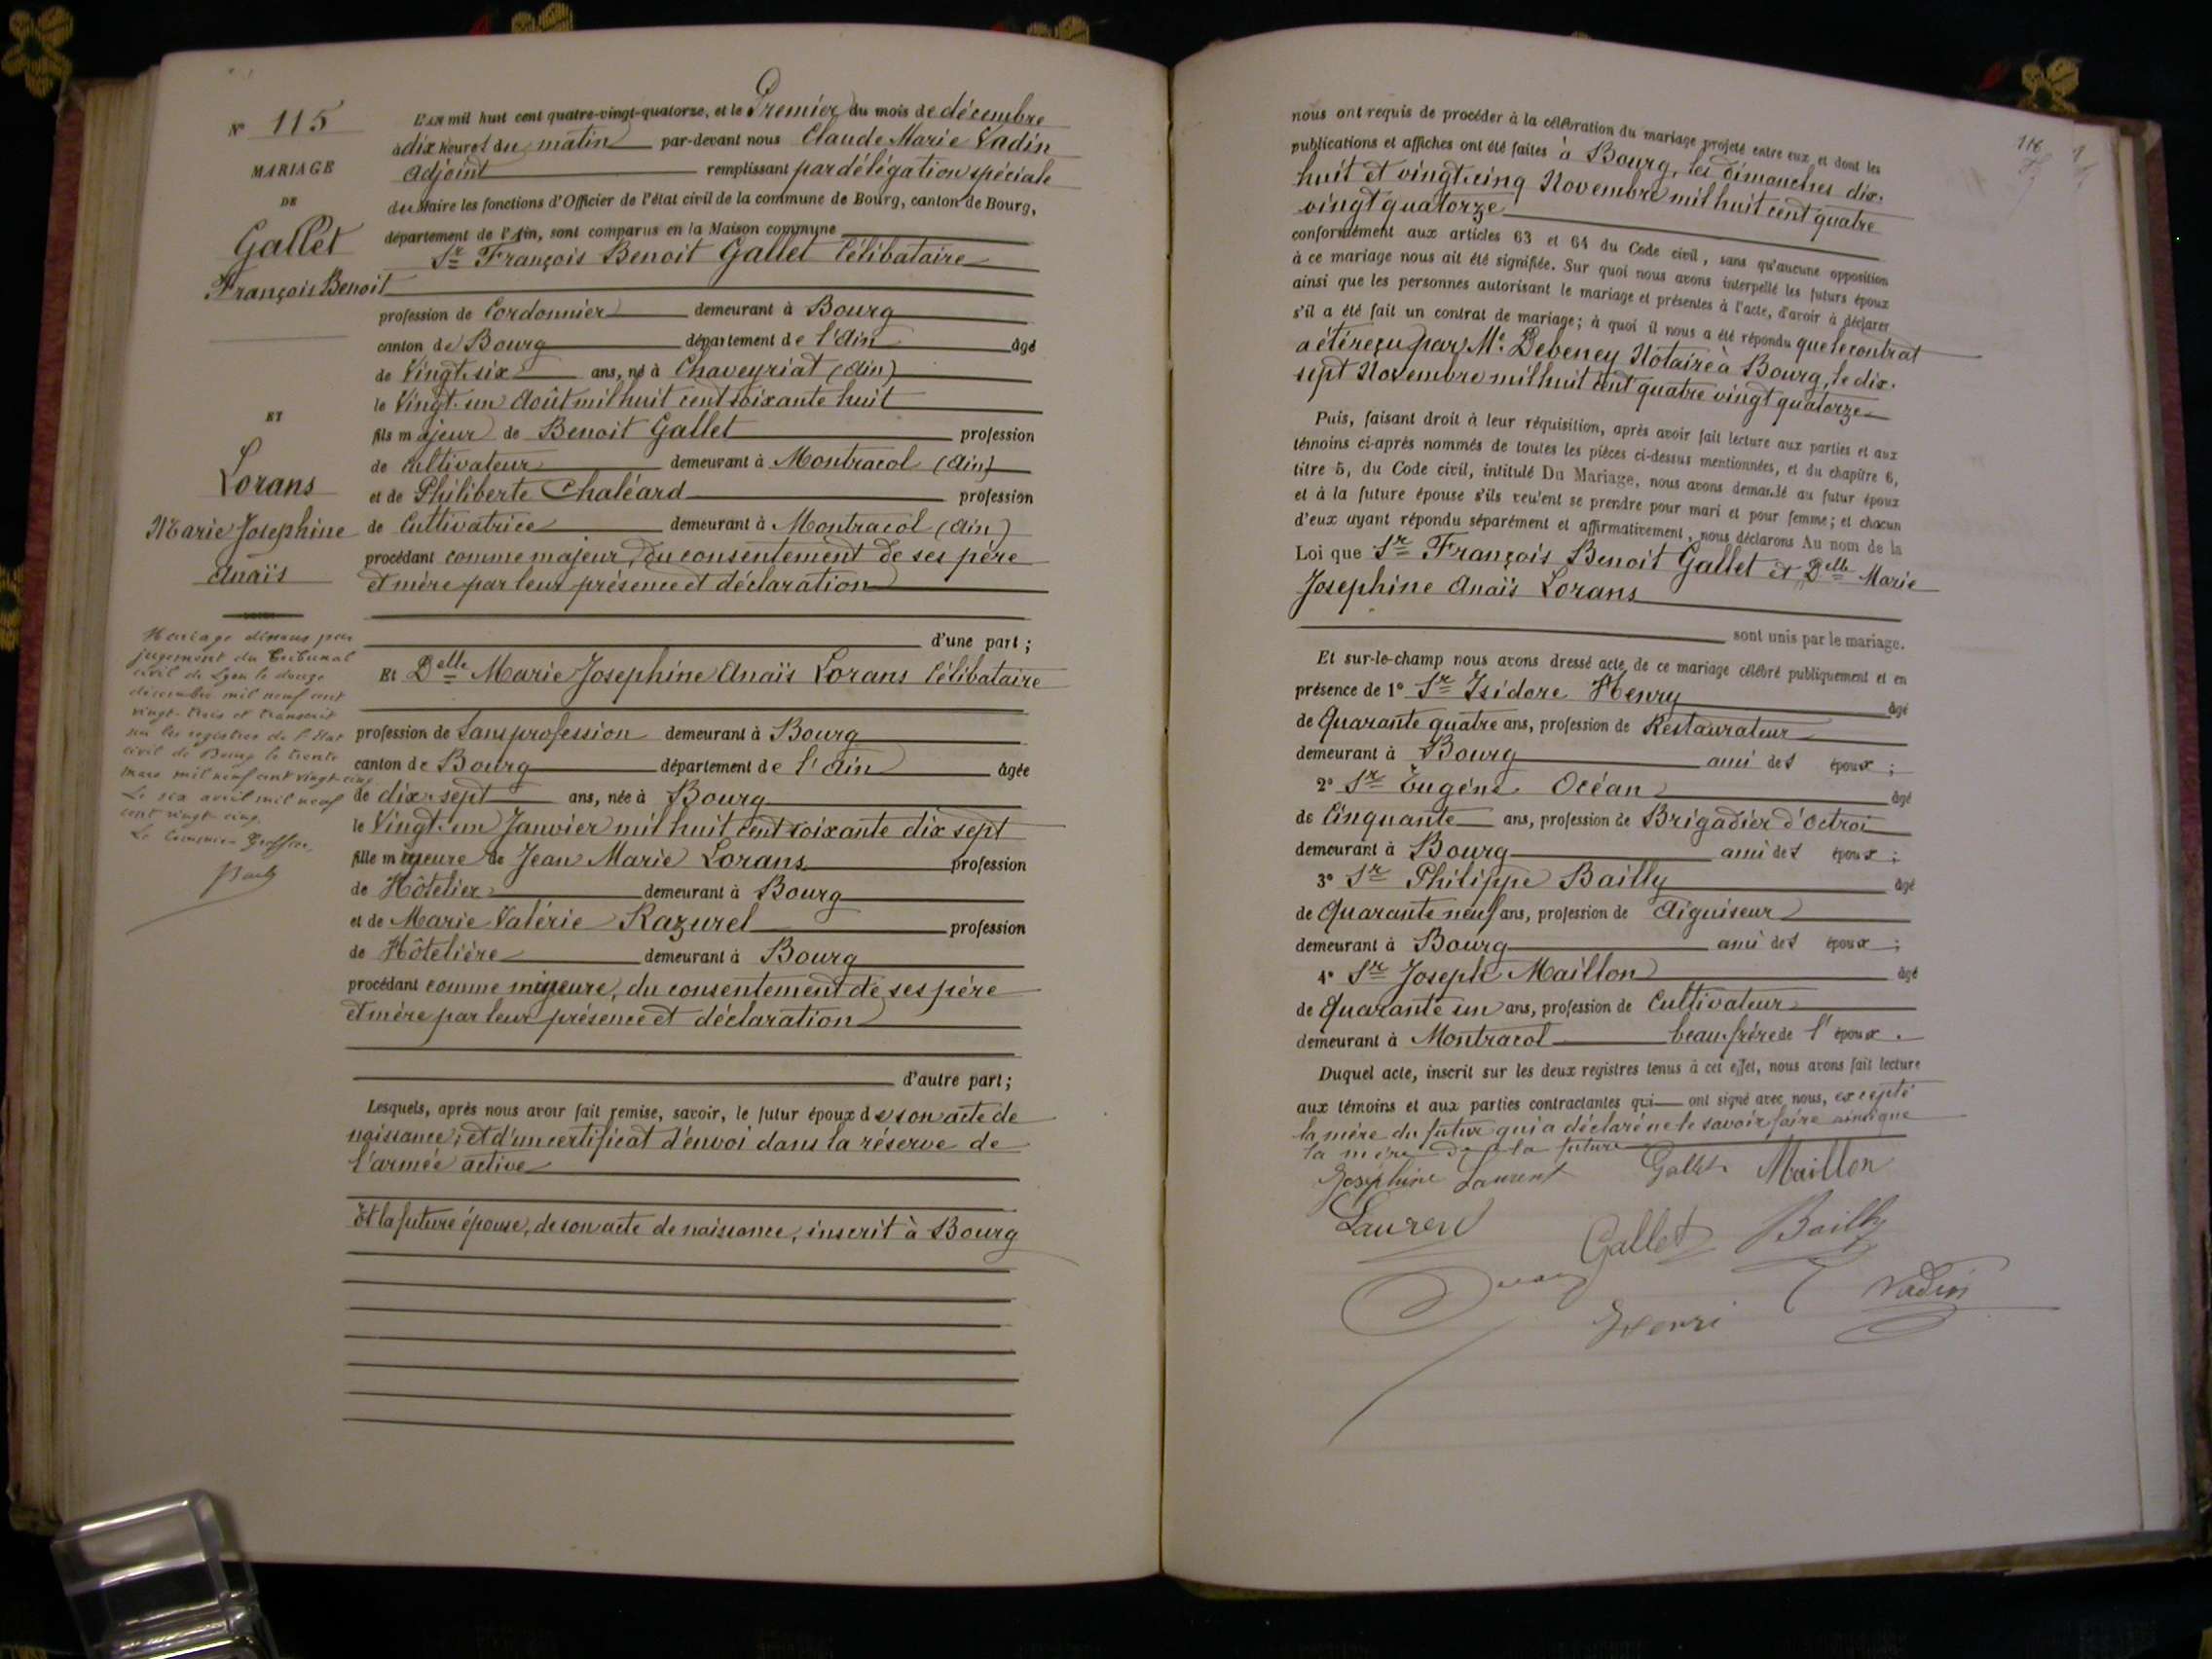 N° 115
MARIAGE
DE
Gallet
François Benoit
ET
Lorans
Marie Josephine
Anaïs
Mariage dissous par
jugement du Tribunal
civil de Lyon le douze
décembre mil neuf cent
vingt-trois et transcrit
sur les registres de l'état
civil de Bourg le trente
mars mil neuf cent vingt-cinq
Le six avril mil neuf
cent vingt-cinq.
Le Commis Greffier,
L'an mil huit cent quatre-vingt-quatorze, et le Premier du mois de décembre
à dix heures du matin par-devant nous Claude Marie Vadin
Adjoint remplissant par délégation spéciale
du Maire les fonctions d'Officier de l'état civil de la commune de Bourg, canton de Bourg,
département de l'Ain, sont comparus en la Maison commune
Sr François Benoit Gallet Célibataire
profession de Cordonnier demeurant à Bourg
canton de Bourg département de l'Ain âgé
de Vingt-six ans, né à Chaveyriat (Ain)
le Vingt-un Août mil huit cent soixante huit
fils majeur de Benoit Gallet profession
de cultivateur demeurant à Montracol (Ain)
et de Philiberte Chaléard profession
de Cultivatrice demeurant à Montracol (Ain)
procédant comme majeur, du consentement de ses père
et mère par leur présence et déclaration
d'une part;
Et Delle Marie Josephine Anaïs Lorans Célibataire
profession de Sans profession demeurant à Bourg
canton de Bourg département de l'Ain âgée
de dix-sept ans, née à Bourg
le Vingt-un Janvier mil huit cent soixante dix sept
fille mineure de Jean Marie Lorans profession
de Hôtelier demeurant à Bourg
et de Marie Valérie Razurel profession
de Hôtelière demeurant à Bourg
procédant comme mineure, du consentement de ses père
et mère par leur présence et déclaration
d'autre part;
Lesquels, après nous avoir fait remise, savoir, le futur époux de son acte de
naissance; et d'un certificat d'envoi dans la réserve de
l'armée active
Et la future épouse, de son acte de naissance, inscrit à Bourg
118
nous ont requis de procéder à la célébration du mariage projeté entre eux et dont les
publications et affiches ont été faites à Bourg, les dimanches dix-
huit et vingt-cinq Novembre mil huit cent quatre
vingt quatorze
conformément aux articles 63 et 64 du Code civil, sans qu'aucune opposition
à ce mariage nous ait été signifiée. Sur quoi nous avons interpellé les futurs époux
ainsi que les personnes autorisant le mariage et présentes à l'acte, d'avoir à déclarer
s'il a été fait un contrat de mariage; à quoi il nous a été répondu que le contrat
a été reçu par Me Debeney Notaire à Bourg, le dix-
sept Novembre mil huit cent quatre vingt quatorze
Puis, faisant droit à leur réquisition, après avoir fait lecture aux parties et aux
témoins ci-après nommés de toutes les pièces ci-dessus mentionnées, et du chapitre 6,
titre 5, du Code civil, intitulé Du Mariage, nous avons demandé au futur époux
et à la future épouse s'ils veulent se prendre pour mari et pour femme; et chacun
d'eux ayant répondu séparément et affirmativement, nous déclarons Au nom de la
Loi que Sr François Benoit Gallet et Delle Marie
Josephine Anaïs Lorans
sont unis par le mariage.
Et sur-le-champ nous avons dressé acte de ce mariage célébré publiquement et en
présence de 1° Sr Isidore Henry âgé
de Quarante quatre ans, profession de Restaurateur
demeurant à Bourg ami des époux;
2° Sr Eugène Océan âgé
de Cinquante ans, profession de Brigadier d'Octroi
demeurant à Bourg ami des époux;
3° Sr Philippe Bailly âgé
de Quarante neuf ans, profession de Aiguiseur
demeurant à Bourg ami des époux;
4° Sr Joseph Maillon âgé
de Quarante un ans, profession de Cultivateur
demeurant à Montracol beau-frère de l'époux.
Duquel acte, inscrit sur les deux registres tenus à cet effet, nous avons fait lecture
aux témoins et aux parties contractantes qui ont signé avec nous, excepté
la mère du futur qui a déclaré ne le savoir faire ainsi que
la mère de la future
Joséphine Laurent Gallet Maillon
Laurent
Gallet Bailly
Henri Vadin